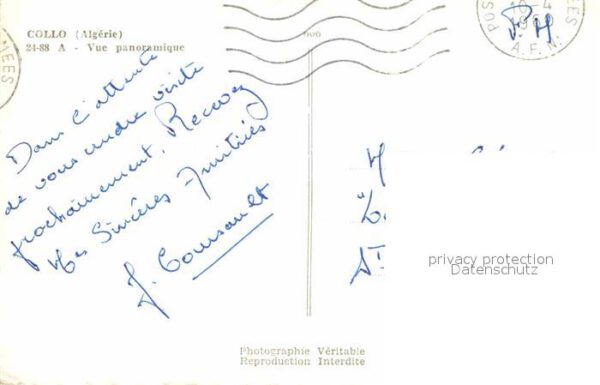 COLLO (Algérie)
24-88 A - Vue panoramique
Dans l'attente
de vous rendre visite
prochainement. Recevez
Mes Sincères Amitiés
J.
POS
1960
A.F.N.
ÉES
P. H
MÉES
M
St
privacy protection
Datenschutz
Photographie Véritable
Reproduction Interdite